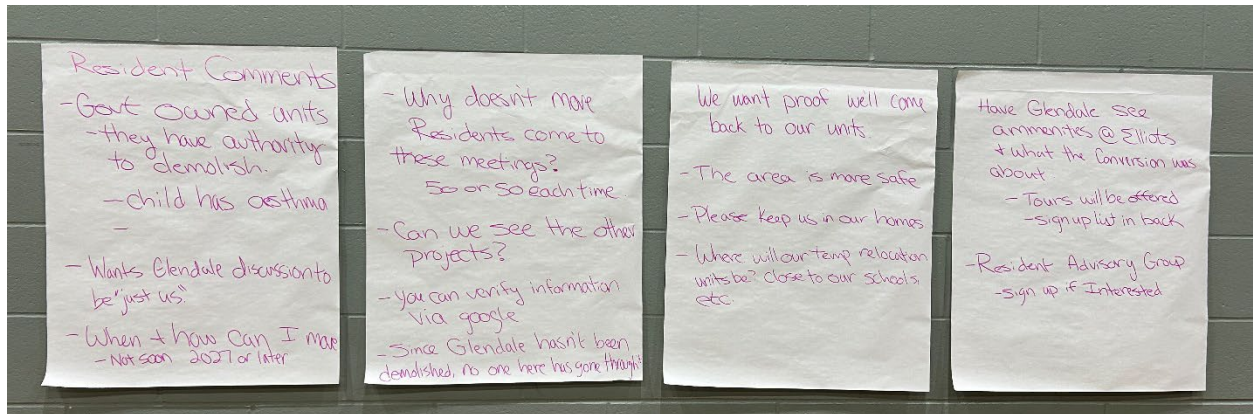 Resident Comments
- Govt owned units
- they have authority
to demolish.
- child has asthma
-
- Wants Glendale discussion to
be "just us."
- When + how can I move
- Not soon 2027 or later
- Why doesn't more
Residents come to
these meetings?
50 or so each time
- Can we see the other
projects?
- you can verify information
via google
- Since Glendale hasn't been
demolished, no one here has gone through
We want proof we'll come
back to our units.
- The area is more safe
- Please keep us in our homes
- Where will our temp relocation
units be? Close to our schools,
etc.
Have Glendale see
ammenities @ Elliots
+ what the Conversion was
about
- Tours will be offered
- sign up list in back
- Resident Advisory Group
- sign up if Interested